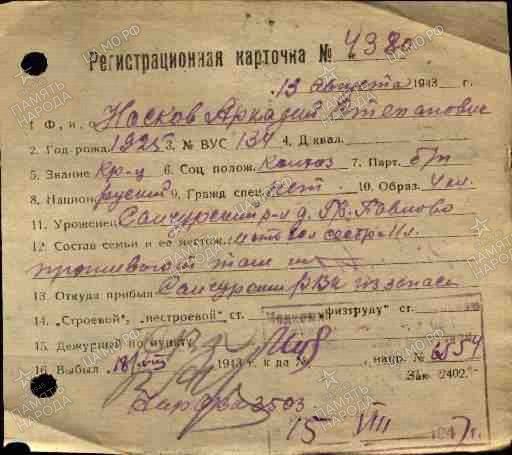 Регистрационная карточка № 4380
13 Августа 1943 г.
1. Ф, и, о Насков Аркадий Степанович
2. Год рожд. 1925 3. № ВУС 134 4. Д квал.
5. Звание Кр-ц 6. Соц полож. Колхоз 7. Парт. б/п
8. Национ. руский 9. Гражд спец. нет 10. Образ. 4 кл.
11. Уроженец Санчурский р-н д. Павлово
12. Состав семьи и ее местож. мать сестра 11 л.
проживают там
13. Откуда прибыл Санчурским РВК из запаса
14. „Строевой“, „нестроевой“ ст. физтруду ст.
15. Дежурный по пункту
16. Выбыл 18/VIII 1943 г. к да № напр. № 6554
Зак 2402.
2503
15 VIII 1947 г.
ПАМЯТЬ НАРОДА
ЦАМО.РФ